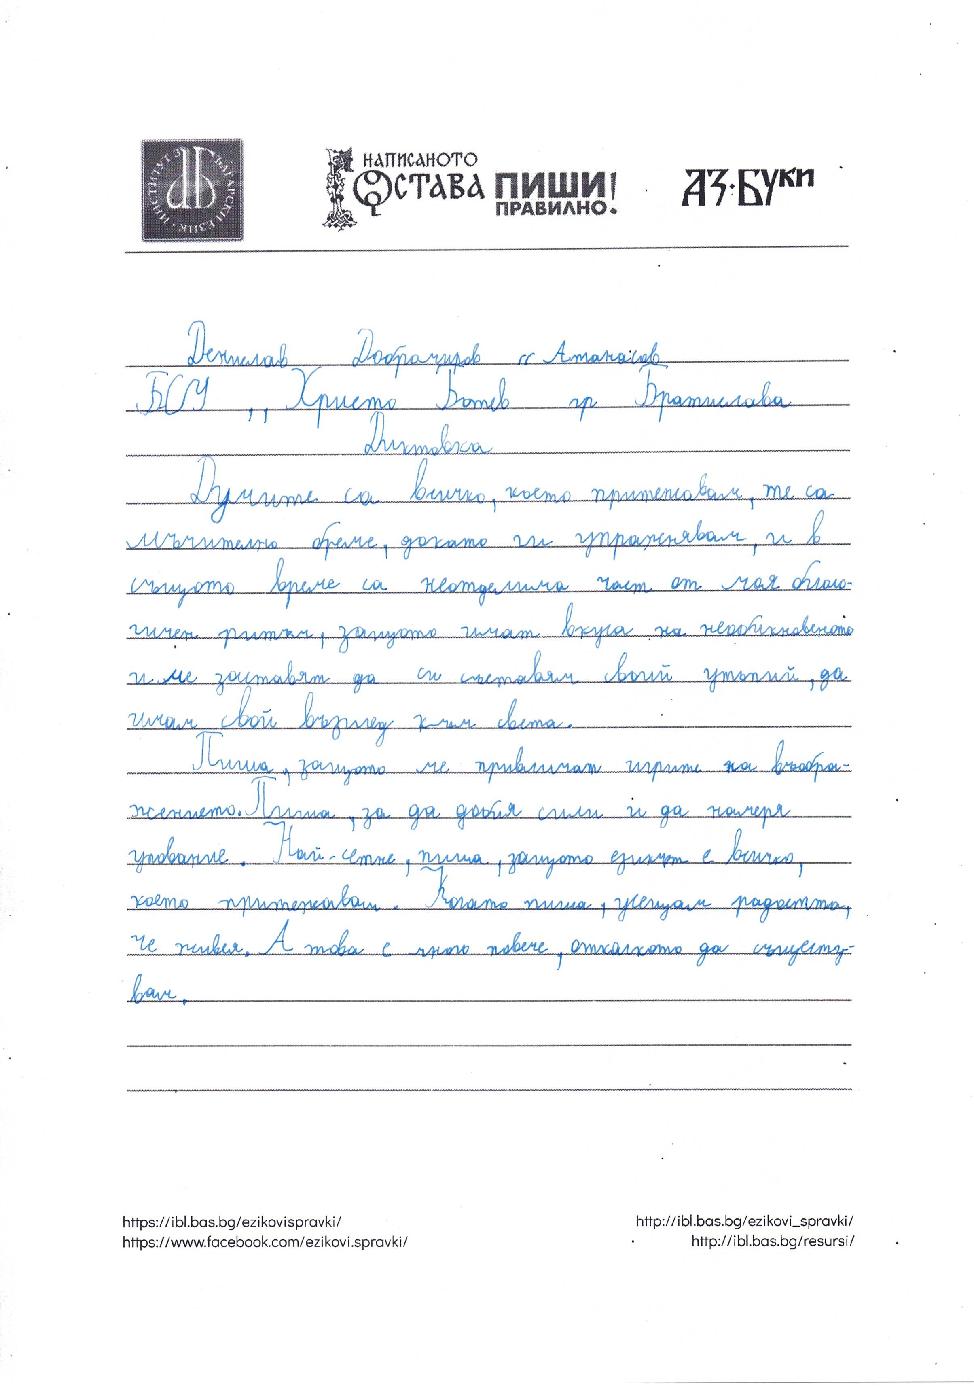 ИНСТИТУТ ЗА БЪЛГАРСКИ ЕЗИК
НАПИСАНОТО
ОСТАВА ПИШИ!
ПРАВИЛНО.
АЗ·БУКИ
Денислав Атанасов
БСУ ,, Христо Ботев гр Братислава
Диктовка
Думите са всичко, което притежавам, те са
мъчително бреме, докато ги упражнявам, и в
същото време са неотделима част от моя биоло-
гичен ритъм, защото имат вкуса на необикновеното
и ме заставят да си съставям своий утопий, да
имам свой възглед към света.
Пиша, защото ме привличат игрите на въобра-
жението. Пиша, за да добия сили и да намеря
упование. Най-сетне, пиша, защото езикът е всичко,
което притежавам. Когато пиша, усещам радостта,
че живея. А това е много повече, отколкото да същест-
вам.
https://ibl.bas.bg/ezikovispravki/
http://ibl.bas.bg/ezikovi_spravki/
https://www.facebook.com/ezikovi.spravki/
http://ibl.bas.bg/resursi/